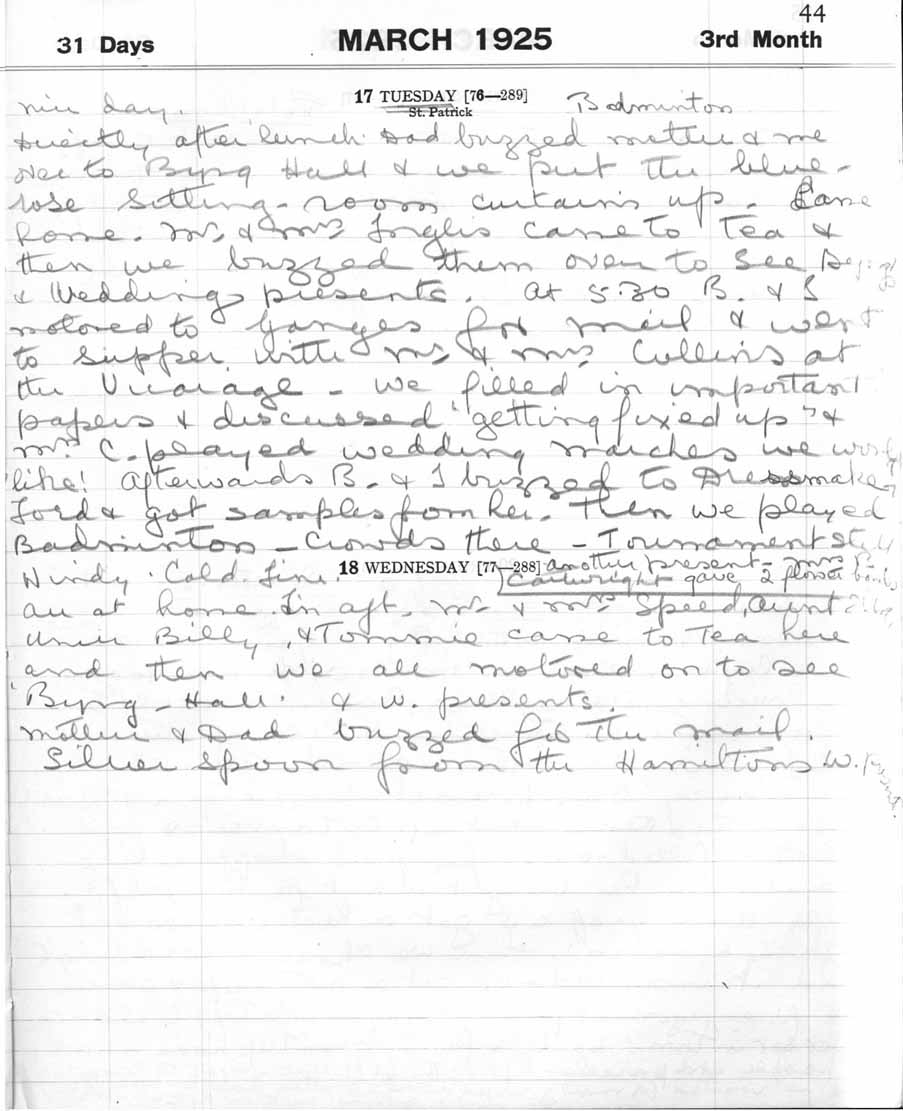 44
31 Days MARCH 1925 3rd Month
17 TUESDAY [76—289]
St. Patrick
nice day. Badminton
Directly after lunch Dad buzzed mother & me
over to Byng Hall & we put the blue-
rose sitting-room curtains up. Came
home. Mr. & Mrs Inglis came to Tea &
then we buzzed them over to see
& Weddings presents. At 5.30 B. & I
motored to Ganges for mail & went
to supper with Mr. & Mrs. Collins at
the Vicarage - We filled in important
papers & discussed 'getting fixed up' &
Mrs. C. played wedding marches we
like! Afterwards B. & I buzzed to Dressmaker
Ford & got samples from her. Then we played
Badminton - Crowds there - Tournament
18 WEDNESDAY [77—288]
another present - Mrs
Cartwright gave 2 flower
Windy. Cold. Fine.
All at home. In aft. Mr. & Mrs Speed, Aunt
Uncle Billy, & Tommie came to Tea here
and then we all motored on to see
'Byng-Hall' & w. presents.
Mother & Dad buzzed for the mail.
Silver spoon from the Hamiltons W.